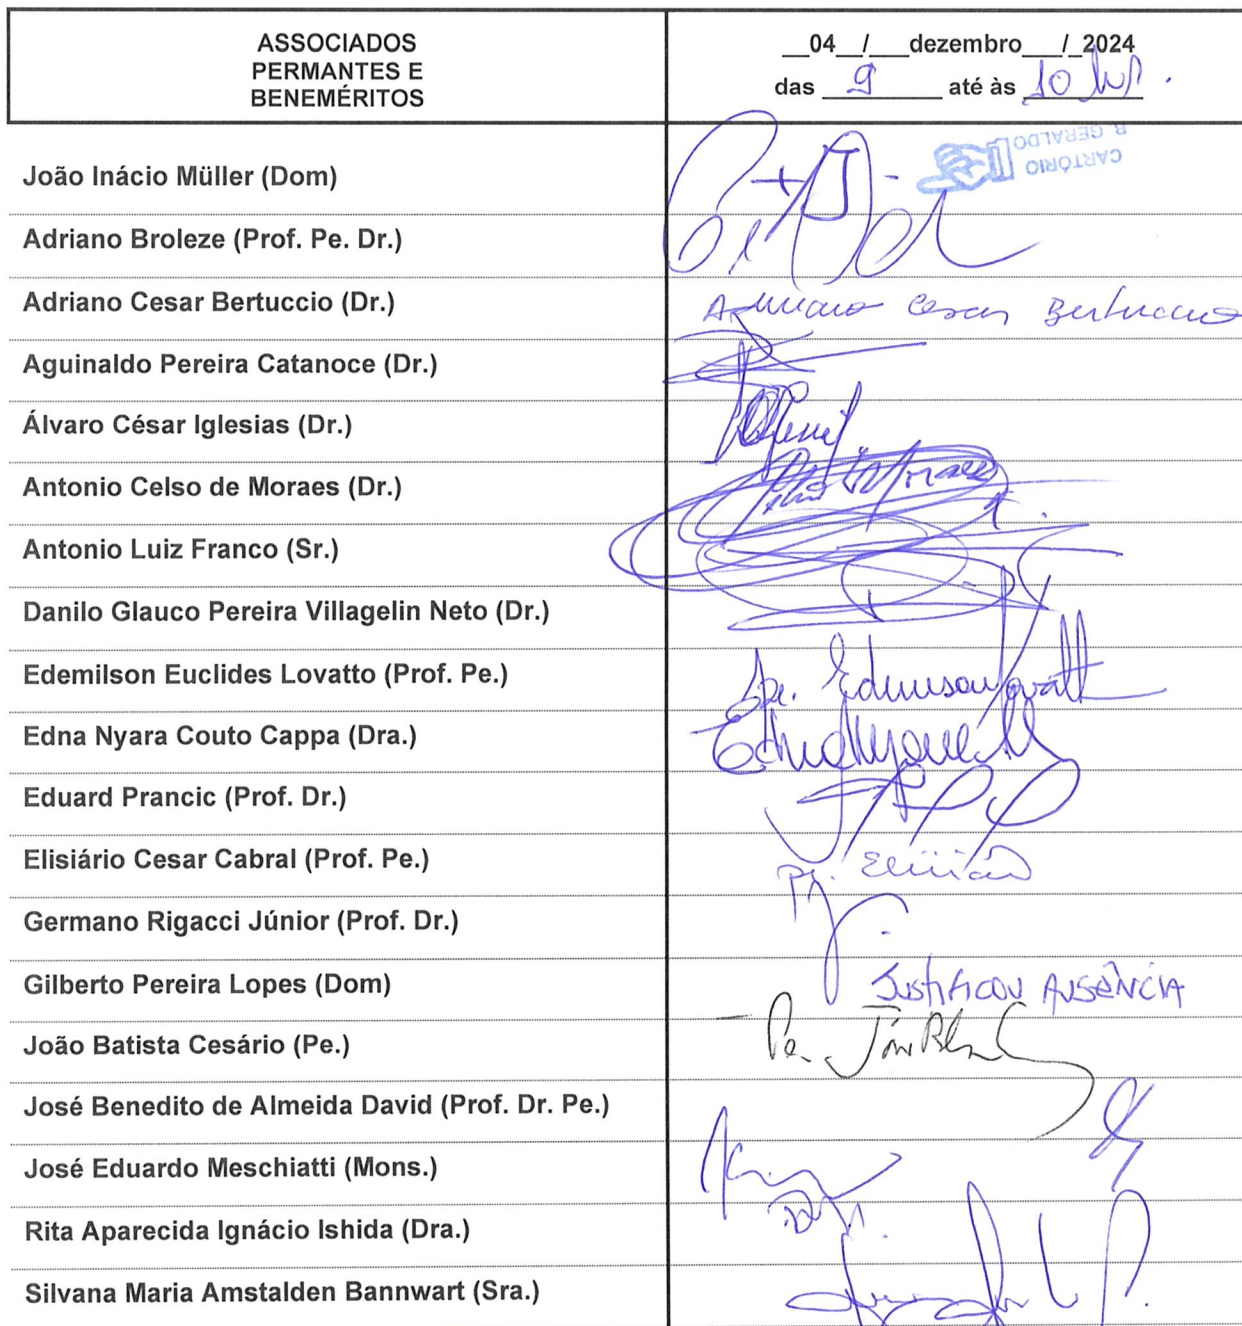 ASSOCIADOS
PERMANTES E
BENEMÉRITOS
__04__/___dezembro___/_2024
das 9 até às 10 hrs.
CARTÓRIO
R. GERALDO
João Inácio Müller (Dom)
Adriano Broleze (Prof. Pe. Dr.)
Adriano Cesar Bertuccio (Dr.) Adriano Cesar Bertuccio
Aguinaldo Pereira Catanoce (Dr.)
Álvaro César Iglesias (Dr.)
Antonio Celso de Moraes (Dr.)
Antonio Luiz Franco (Sr.)
Danilo Glauco Pereira Villagelin Neto (Dr.)
Edemilson Euclides Lovatto (Prof. Pe.)
Edna Nyara Couto Cappa (Dra.)
Eduard Prancic (Prof. Dr.)
Elisiário Cesar Cabral (Prof. Pe.)
Germano Rigacci Júnior (Prof. Dr.)
Gilberto Pereira Lopes (Dom) JUSTIFICOU AUSÊNCIA
João Batista Cesário (Pe.)
José Benedito de Almeida David (Prof. Dr. Pe.)
José Eduardo Meschiatti (Mons.)
Rita Aparecida Ignácio Ishida (Dra.)
Silvana Maria Amstalden Bannwart (Sra.)